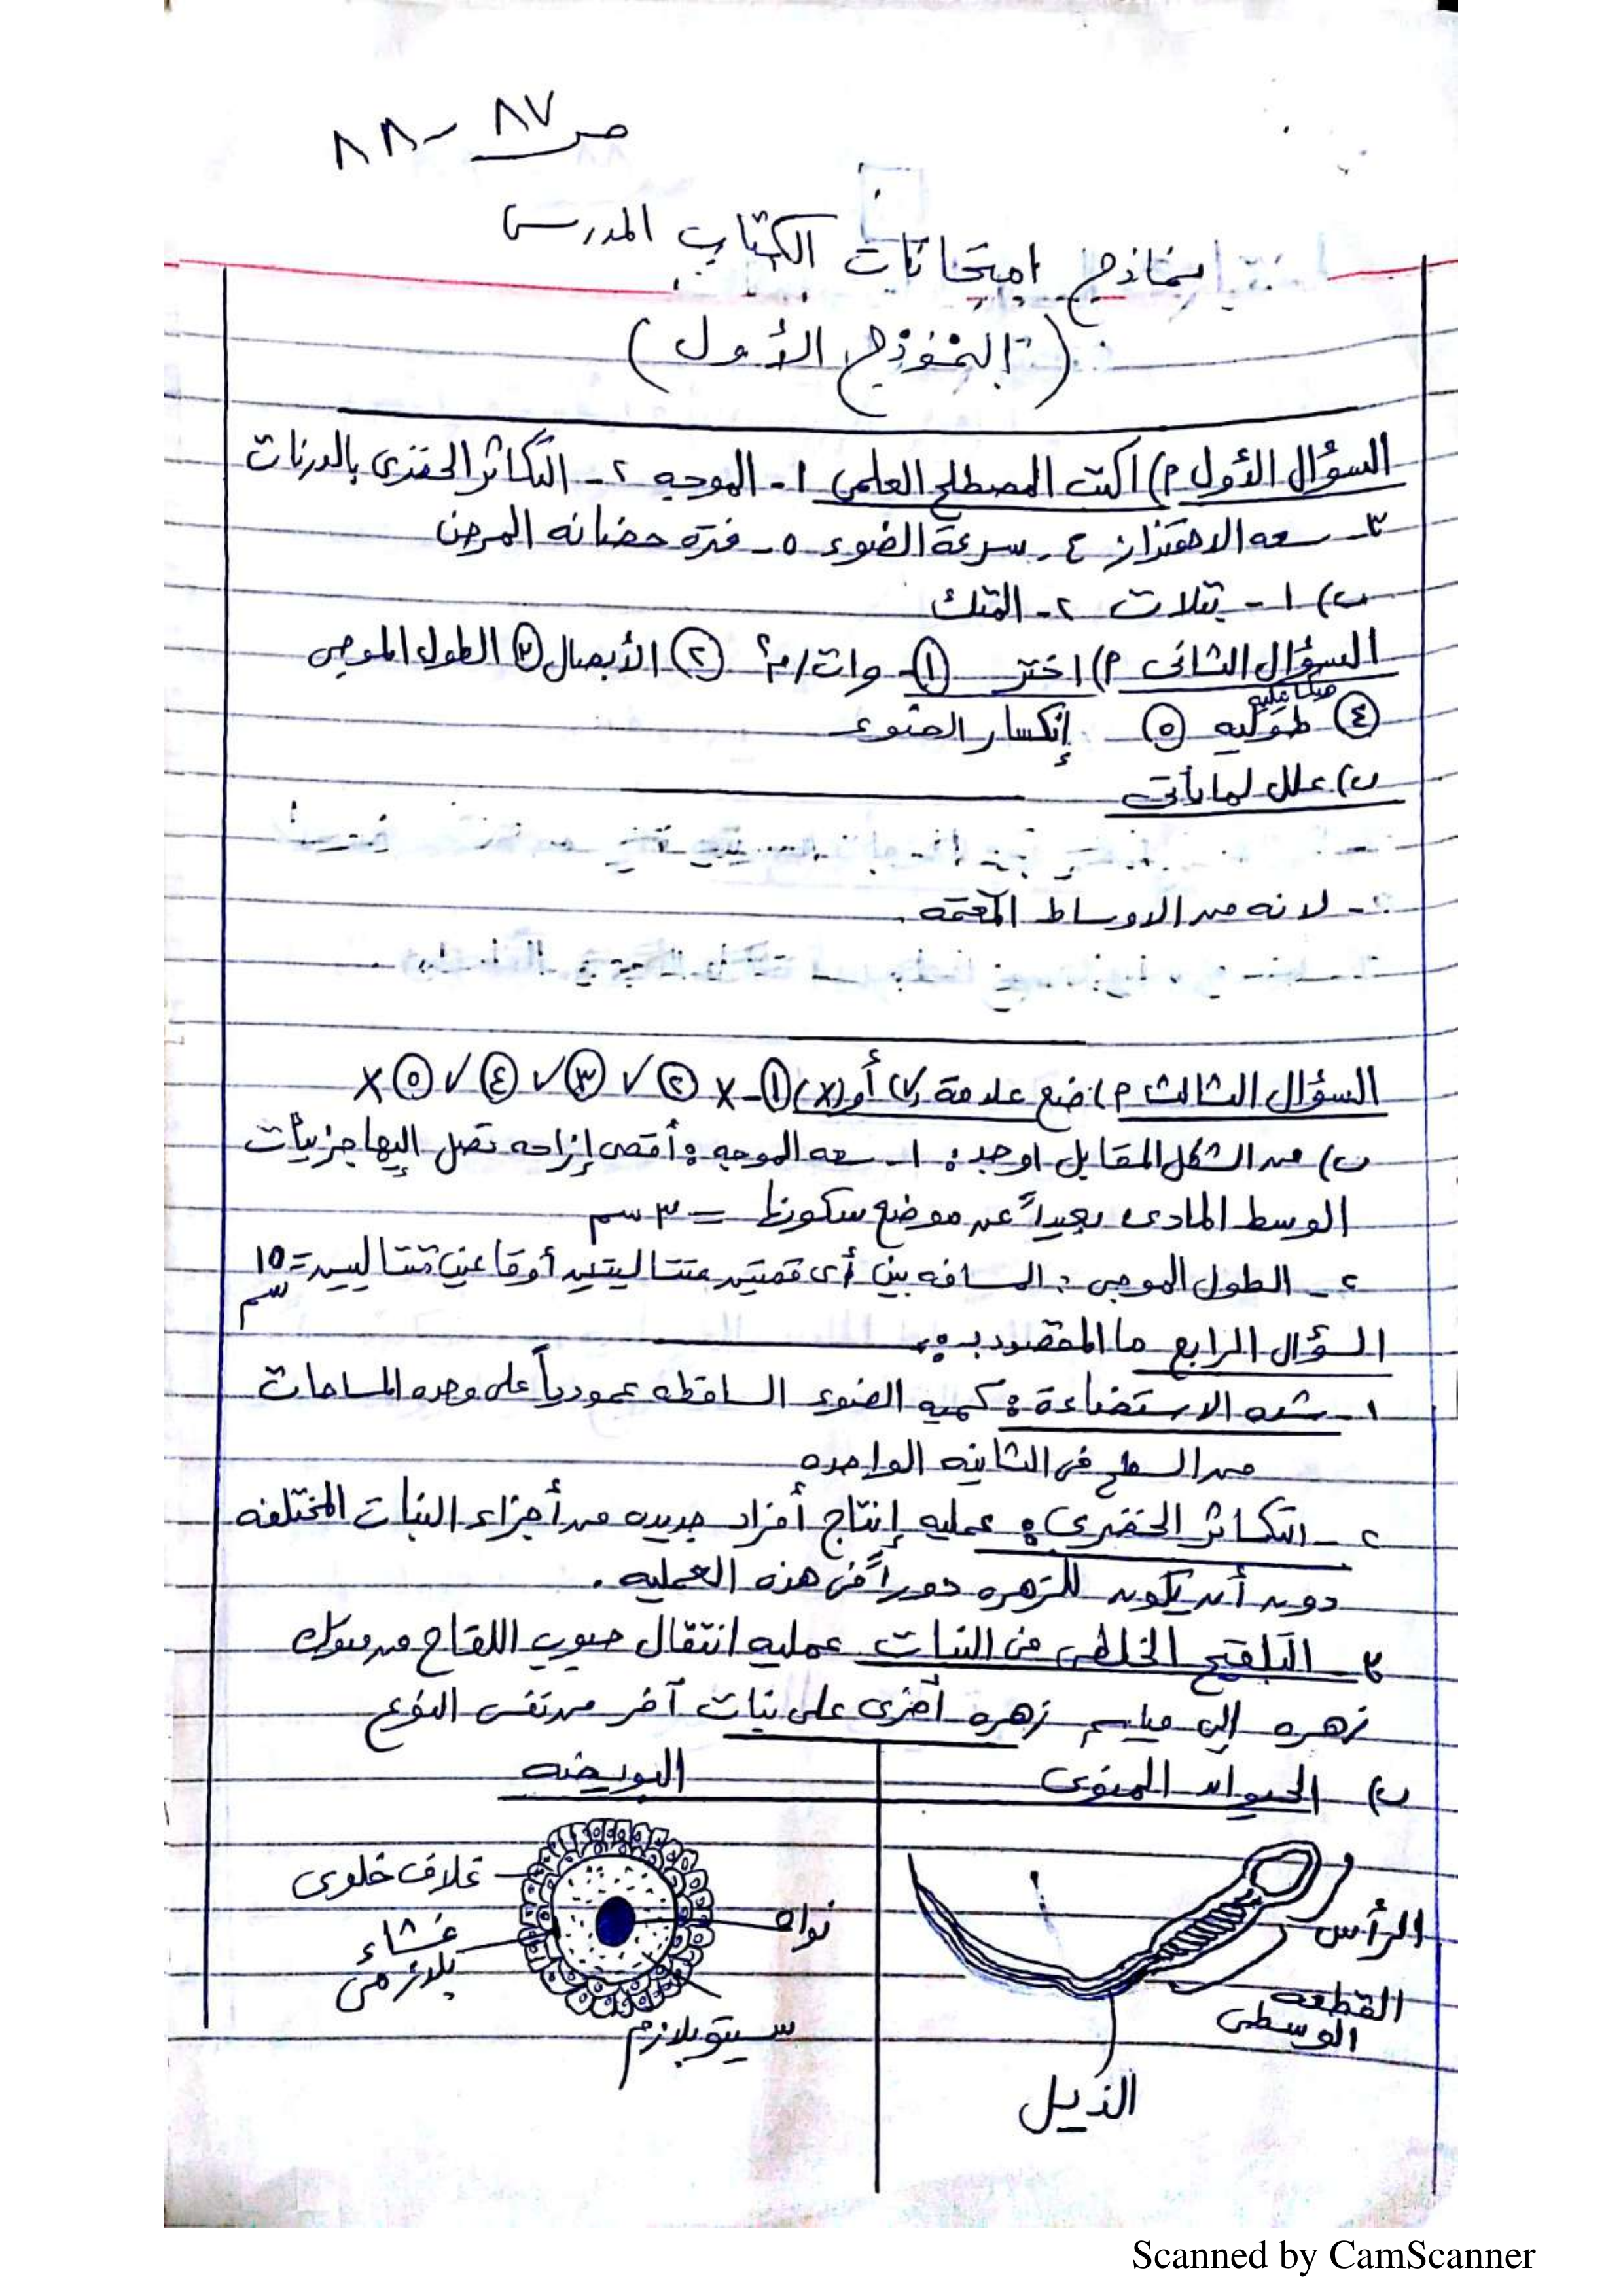 ص ٨٧ - ٨٨
نماذج امتحانات الكتاب المدرسى
(النموذج الأول)
السؤال الأول ٢) اكتب المصطلح العلمى ١- الموجه ٢- التكاثر الخضرى بالدرنات
٣- سعه الاهتزازه ٤- سرعة الضوء ٥- فترة حضانه المرض
ب) ١- بتلات ٢- المتك
السؤال الثانى ٢) اختر ① - وات/م٢ ② الأبصال ③ الطول الموجى
④ طوليه ميكانيكيه ⑤ إنكسار الضوء
ب) علل لما يأتى
٢- لانه من الاوساط المعتمه.
السؤال الثالث ٢) ضع علامة (√) أو (x) ① - x ② √ ③ √ ④ √ ⑤ x
ب) من الشكل المقابل اوجد: ١- سعه الموجه: أقصى إزاحه تصل إليها جزيئات
الوسط المادى بعيداً عن موضع سكونها = ٣ سم
٢- الطول الموجى: المسافه بين أى قمتين متتاليتين أو قاعين متتاليين = ١٥ سم
السؤال الرابع ما المقصود بـ:
١- شده الاستضاءة: كميه الضوء الساقطه عمودياً على وحده المساحات
من السطح فى الثانيه الواحده
٢- التكاثر الخضرى: عمليه إنتاج أفراد جديده من أجزاء النبات المختلفه
دون أن يكون للزهره دوراً فى هذه العمليه.
٣- التلقيح الخلطى فى النبات عمليه انتقال حبوب اللقاح من متوك
زهره إلى مياسم زهره أخرى على نبات آخر من نفس النوع
ب) الحيوان المنوى
البويضه
الرأس
القطعه الوسطى
الذيل
غلاف خلوى
نواه
غشاء بلازمى
سيتوبلازم
Scanned by CamScanner